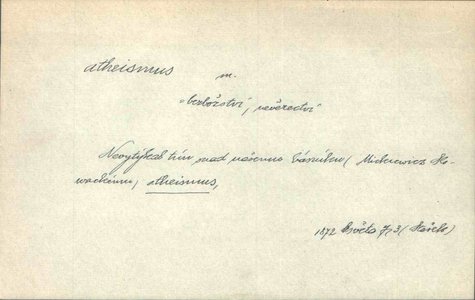 atheismus m.
bezbožství, nevěrectví
Nevytýkal tím snad našemu básníku (Mickiewicz Slo-
wackému) atheismus,
1872 Květy 7, 3 (